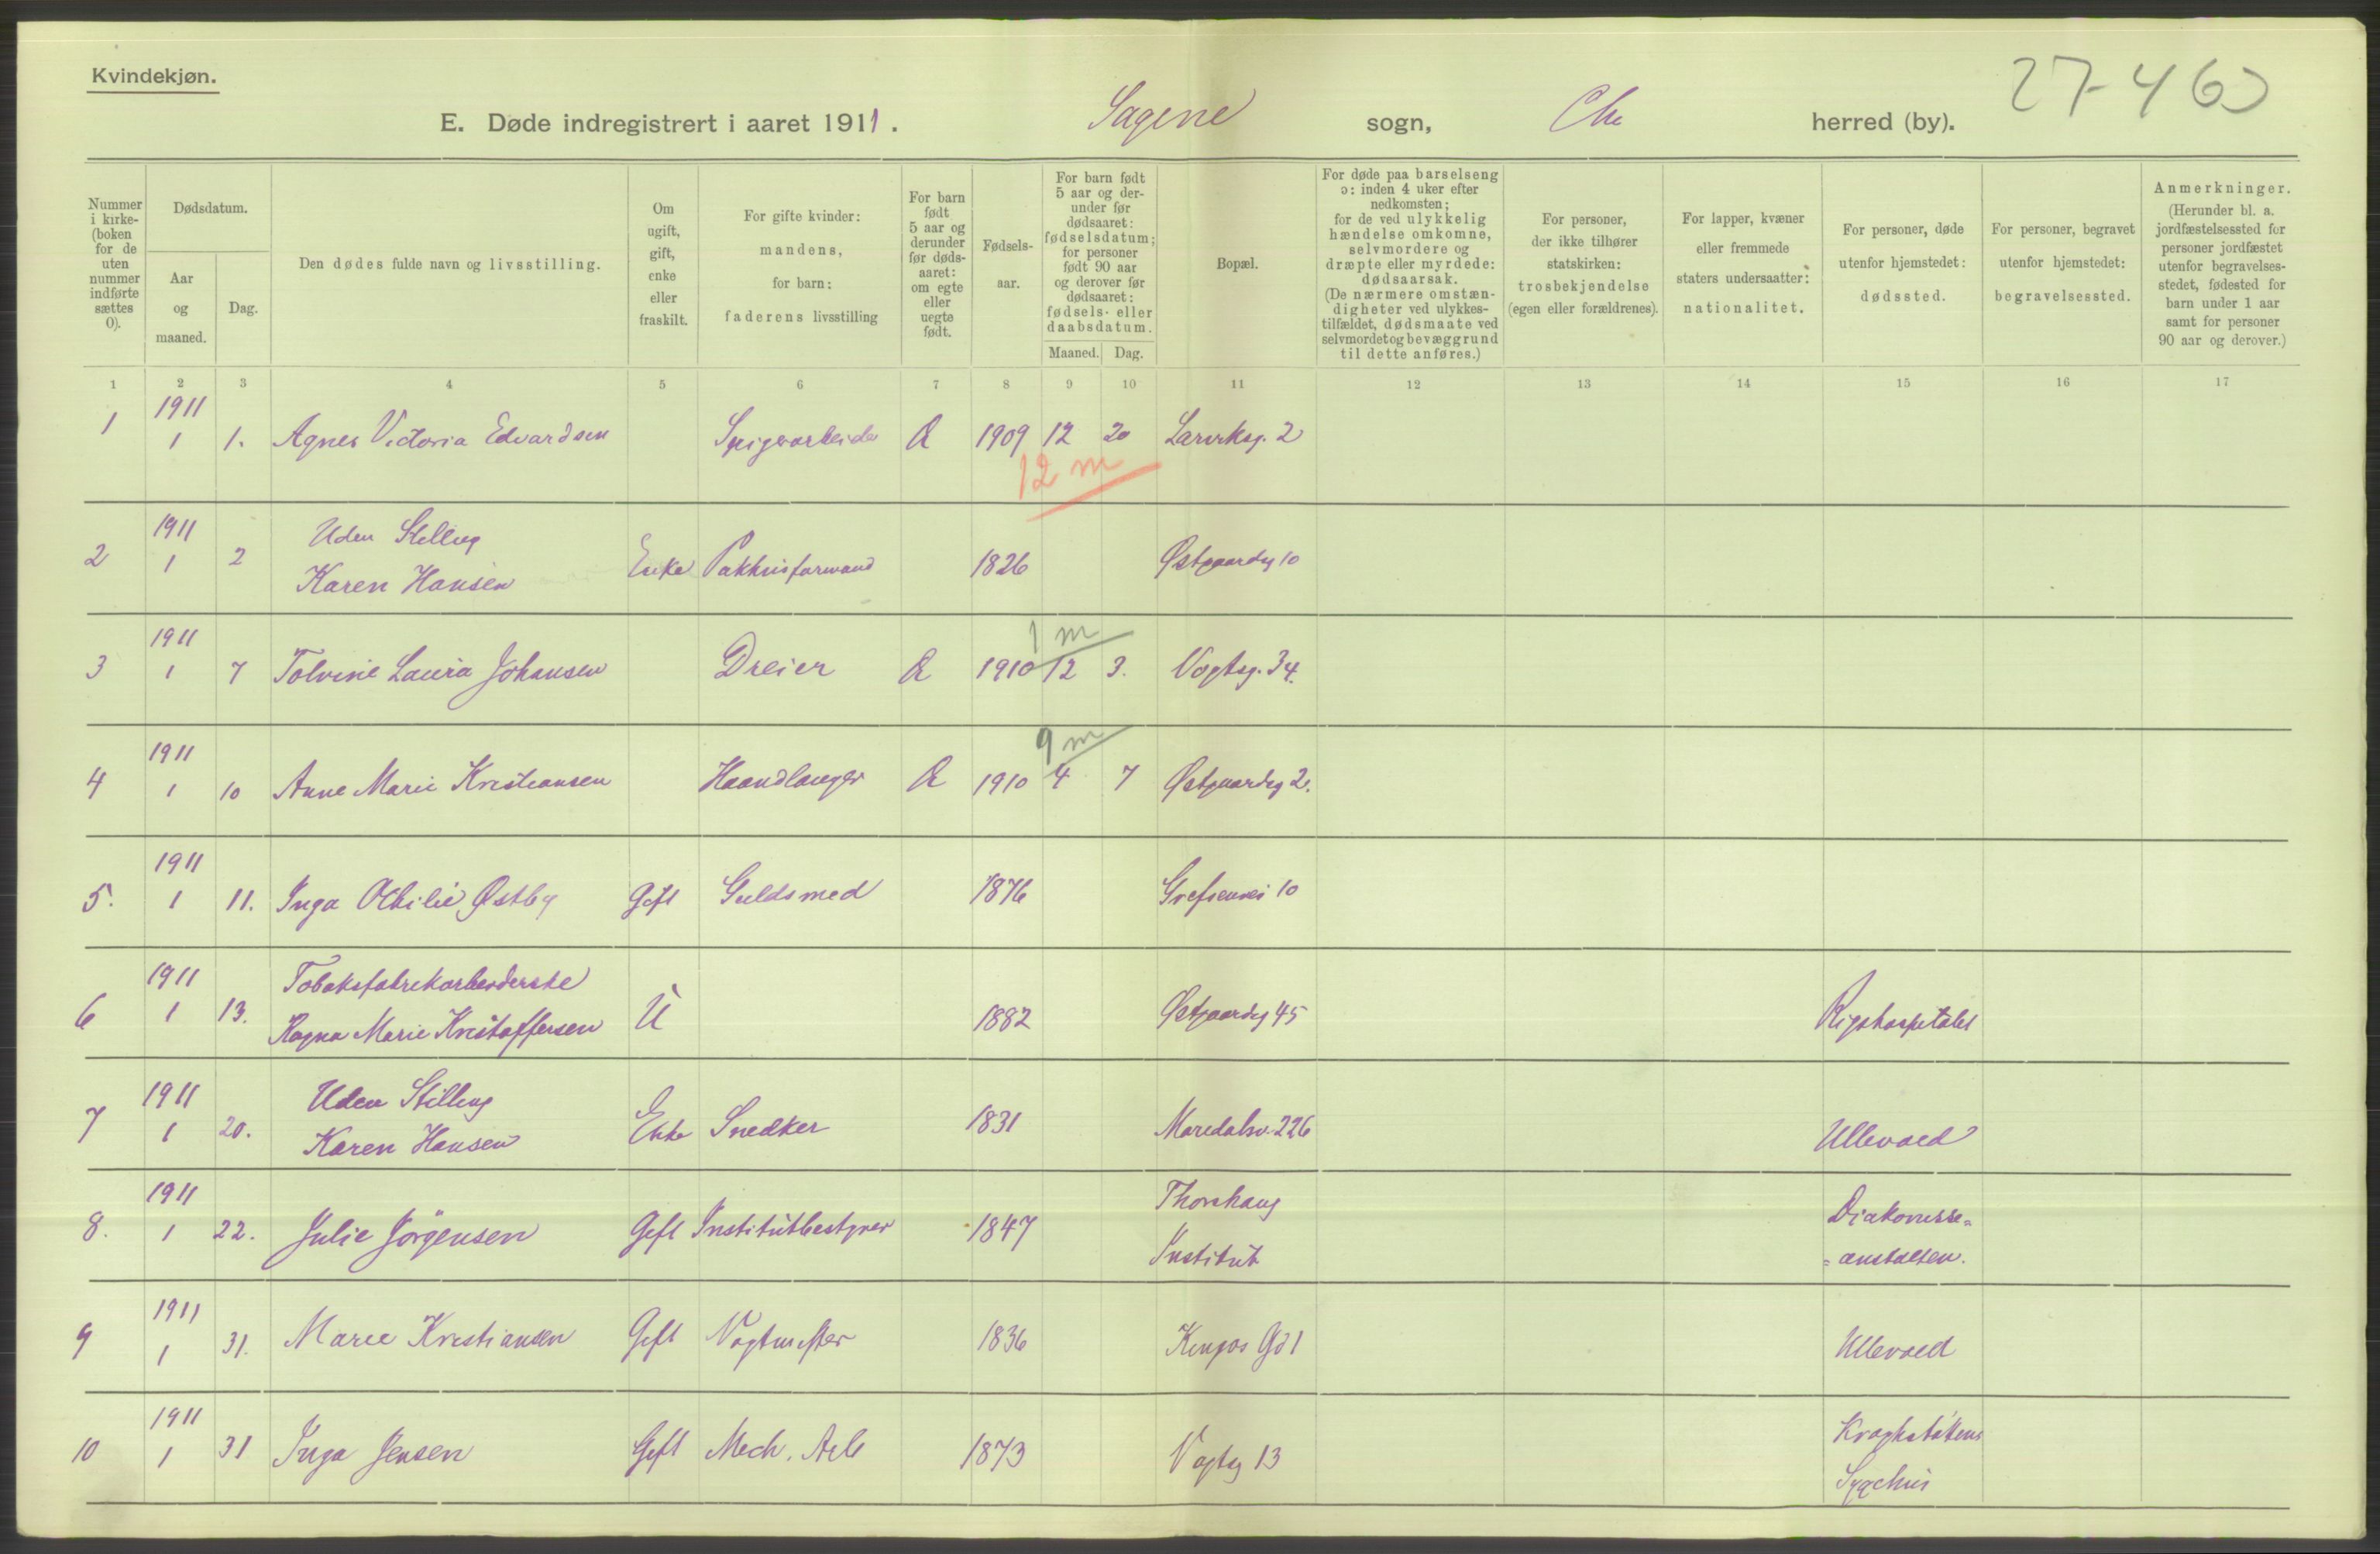 Kvindekjøn.
E. Døde indregistrert i aaret 1911. Sagene sogn, Chr herred (by). 27-460
Nummer i kirke-(boken for de uten nummer indførte sættes 0).
Dødsdatum.
Aar og maaned.
Dag.
Den dødes fulde navn og livsstilling.
Om ugift, gift, enke eller fraskilt.
For gifte kvinder: mandens, for barn: faderens livsstilling
For barn født 5 aar og derunder før døds-aaret: om egte eller uegte født.
Fødsels-aar.
For barn født 5 aar og der-under før dødsaaret: fødselsdatum; for personer født 90 aar og derover før dødsaaret: fødsels- eller daabsdatum.
Maaned. Dag.
Bopæl.
For døde paa barselseng ɔ: inden 4 uker efter nedkomsten; for de ved ulykkelig hændelse omkomne, selvmordere og dræpte eller myrdede: dødsaarsak. (De nærmere omstæn-digheter ved ulykkes-tilfældet, dødsmaate ved selvmordet og bevæggrund til dette anføres.)
For personer, der ikke tilhører statskirken: trosbekjendelse (egen eller forældrenes).
For lapper, kvæner eller fremmede staters undersaatter: nationalitet.
For personer, døde utenfor hjemstedet: dødssted.
For personer, begravet utenfor hjemstedet: begravelsessted.
Anmerkninger. (Herunder bl. a. jordfæstelsessted for personer jordfæstet utenfor begravelses-stedet, fødested for barn under 1 aar samt for personer 90 aar og derover.)
1 2 3 4 5 6 7 8 9 10 11 12 13 14 15 16 17
1 1911 1 1. Agnes Victoria Edvardsen Spigerarbeider Æ 1909 12 20 Larviksg. 2
12 m
2 1911 1 2 Uden Stilling
Karen Hansen Enke Pakhusformand 1826 Østgaardsg 10
1 m
3 1911 1 7 Tolvine Laura Johansen Dreier Æ 1910 12 3. Vogtsg. 34.
9 m
4 1911 1 10 Anne Marie Kristiansen Haandlanger Æ 1910 4 7 Østgaardsg 2.
5. 1911 1 11. Inga Othilie Østby Gift Guldsmed 1876 Grefsenvei 10
6 1911 1 13. Tobaksfabrikarbeiderske
Ragna Marie Kristoffersen U 1882 Østgaardsg 45 Rigshospitalet
7 1911 1 20. Uden Stilling
Karen Hansen Enke Snedker 1831 Maridalsv. 226 Ullevaal
8. 1911 1 22. Julie Jörgensen Gift Institutbestyrer 1847 Thorshaug
Institut Diakonisse=
=anstalten.
9 1911 1 31. Marie Kristiansen Gift Vogtmester 1836 Kingos Gd 1 Ullevaal
10 1911 1 31 Inga Jensen Gift Mech. Arb 1873 Vogtsg 13 Kragstöttens
Sygehus